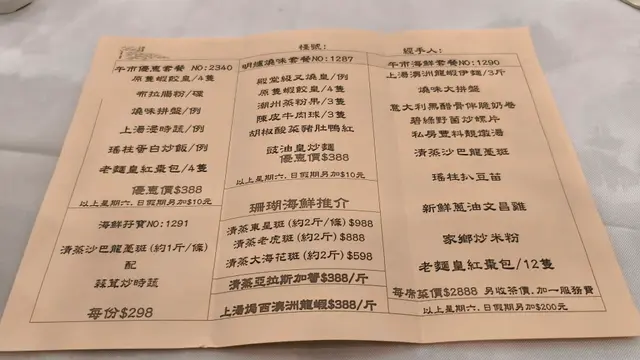 檯號:
經手人:
午市優惠套餐 NO:2340
原隻蝦餃皇/4隻
布拉腸粉/碟
燒味拼盤/例
上湯浸時蔬/例
瑤柱蛋白炒飯/例
老麵皇紅棗包/4隻
優惠價$388
以上星期六.日假期另加$10元
海鮮孖寶NO:1291
清蒸沙巴龍躉斑(約1斤/條)
配
菇茸炒時蔬
每份$298
明爐燒味套餐NO:1287
殿堂級叉燒皇/例
原隻蝦餃皇/4隻
潮州蒸粉果/3隻
陳皮牛肉球/3隻
胡椒酸菜豬肚鴨紅
豉油皇炒麵
優惠價$388
以上星期六.日假期另加$10元
珊瑚海鮮推介
清蒸東星斑(約2斤/條)$988
清蒸老虎斑(約2斤)$888
清蒸大海花斑(約2斤)$598
清蒸亞拉斯加蟹$388/斤
上湯焗百澳洲龍蝦$388/斤
午市海鮮套餐NO:1290
上湯澳洲龍蝦伊麵/3斤
燒味大拼盤
意大利黑醋骨伴脆奶卷
碧綠野菌炒螺片
私房豐料靚燉湯
清蒸沙巴龍躉斑
瑤柱扒豆苗
新鮮蔥油文昌雞
家鄉炒米粉
老麵皇紅棗包/12隻
每席菜價$2888 另收茶價.加一服務費
以上星期六.日假期另加$200元